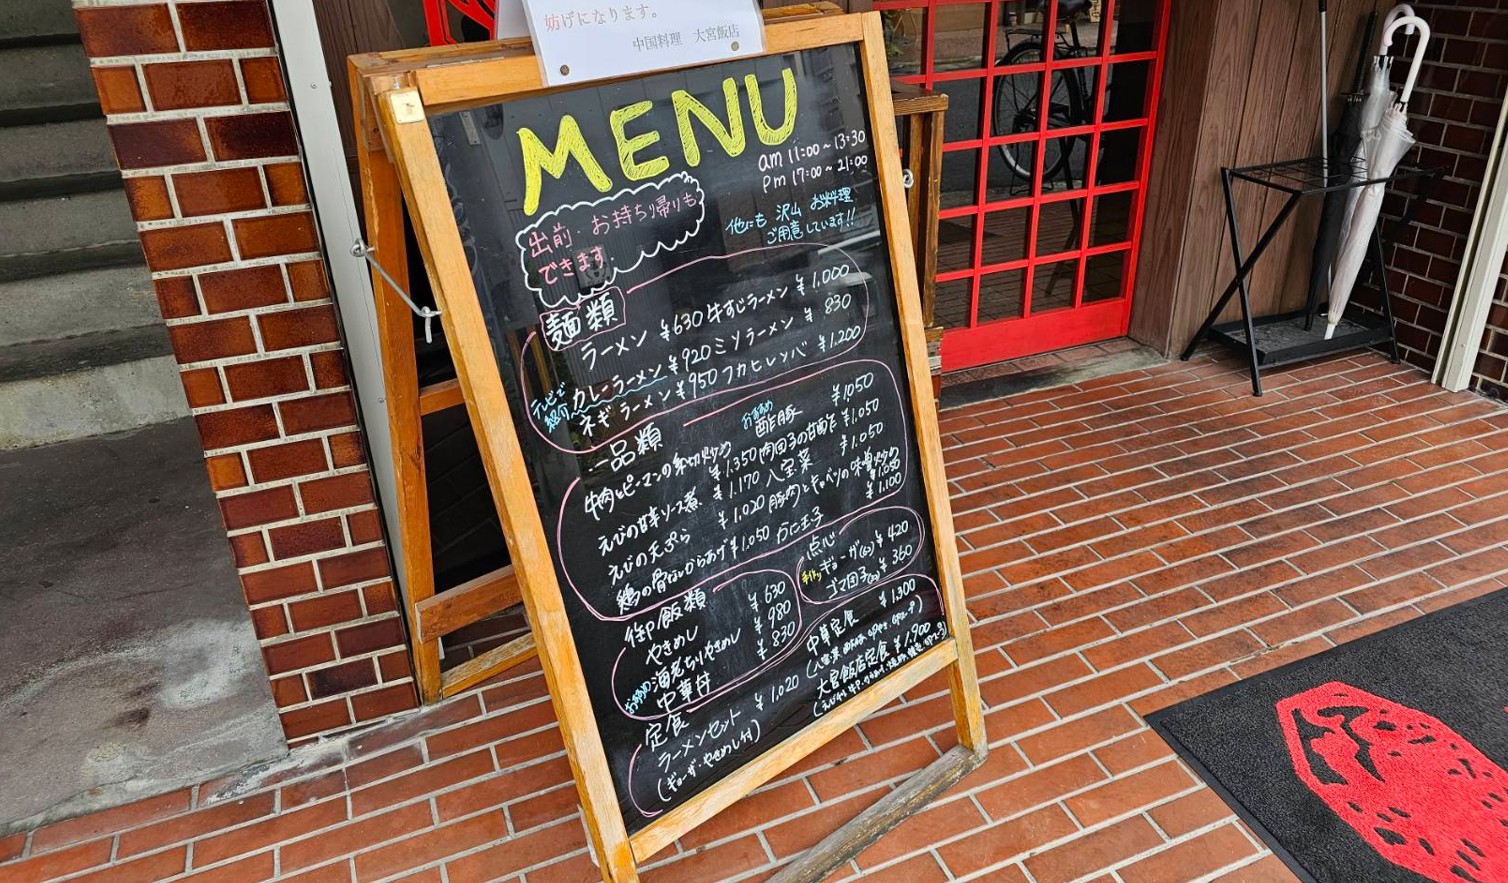 妨げになります。
中国料理 大宮飯店
MENU
am 11:00~13:30
pm 17:00~21:00
出前・お持ち帰りも
できます
他にも 沢山 お料理
ご用意しています!!
麺類
ラーメン ¥630 牛すじラーメン ¥1,000
テレビで紹介 カレーラーメン ¥920 ミソラーメン ¥830
ネギラーメン ¥950 フカヒレソバ ¥1,200
一品類 おすすめ 酢豚 ¥1,050
牛肉とピーマンの糸切炒め ¥1,350 肉団子の甘酢 ¥1,050
えびの甘辛ソース煮 ¥1,170 八宝菜 ¥1,050
えびの天ぷら ¥1,020 豚肉とキャベツの味噌炒め ¥1,050
鶏の骨なしからあげ ¥1,050 かに玉子 ¥1,100
点心
手作り ギョーザ(6) ¥420
ゴマ団子 ¥360
御飯類
やきめし ¥630
おすすめ 海老ちりやきめし ¥980
中華丼 ¥830
定食
ラーメンセット ¥1,020
(ギョーザ・やきめし付)
中華定食 ¥1,300
大宮飯店定食 ¥1,900